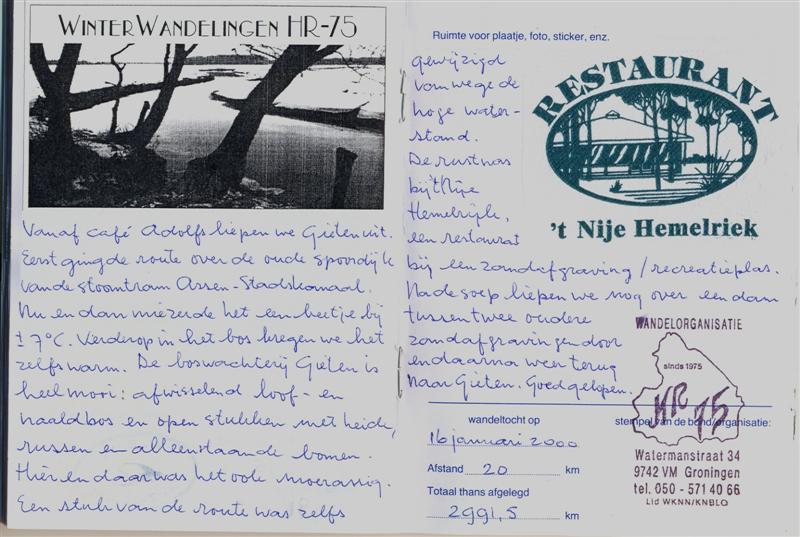 WINTERWANDELINGEN HR-75
Vanaf café Adolfs liepen we Gieten uit.
Eerst ging de route over de oude spoordijk
van de stoomtram Assen-Stadskanaal.
Nu en dan miezerde het een beetje bij
± 7°C. Verderop in het bos kregen we het
zelfs warm. De boswachterij Gieten is
heel mooi: afwisselend loof- en
naaldbos en open stukken met heide,
russen en alleenstaande bomen.
Hier en daar was het ook moerassig.
Een stuk van de route was zelfs
Ruimte voor plaatje, foto, sticker, enz.
gewijzigd
vanwege de
hoge water-
stand.
De rust was
bij 't Nije
Hemelriek,
een restaurat
bij een zandafgraving/recreatieplas.
Na de soep liepen we nog over een dam
tussen twee oudere
zandafgravingen door
en daarna weer terug
naar Gieten. Goed gelopen.
RESTAURANT
't Nije Hemelriek
WANDELORGANISATIE
sinds 1975
HR 75
Watermanstraat 34
9742 VM Groningen
tel. 050 - 571 40 66
Lid WKNN/KNBLO
wandeltocht op
stempel van de bond/organisatie:
16 januari 2000
Afstand 20 km
Totaal thans afgelegd
2991,5 km